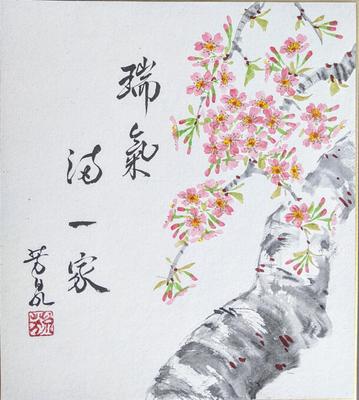 瑞氣
満一家
芳泉